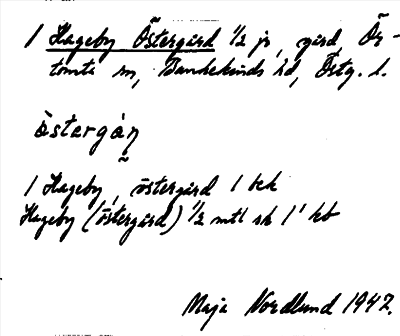 1 Hageby Östergård 1/2 js, gård, Ör-
tomta sn, Bankekinds hd, Östg. l.
östergáɳ
1 Hageby, östergård 1 bck
Hageby (östergård) 1/2 mtl sk 1' kb
Maja Nordlund 1947.